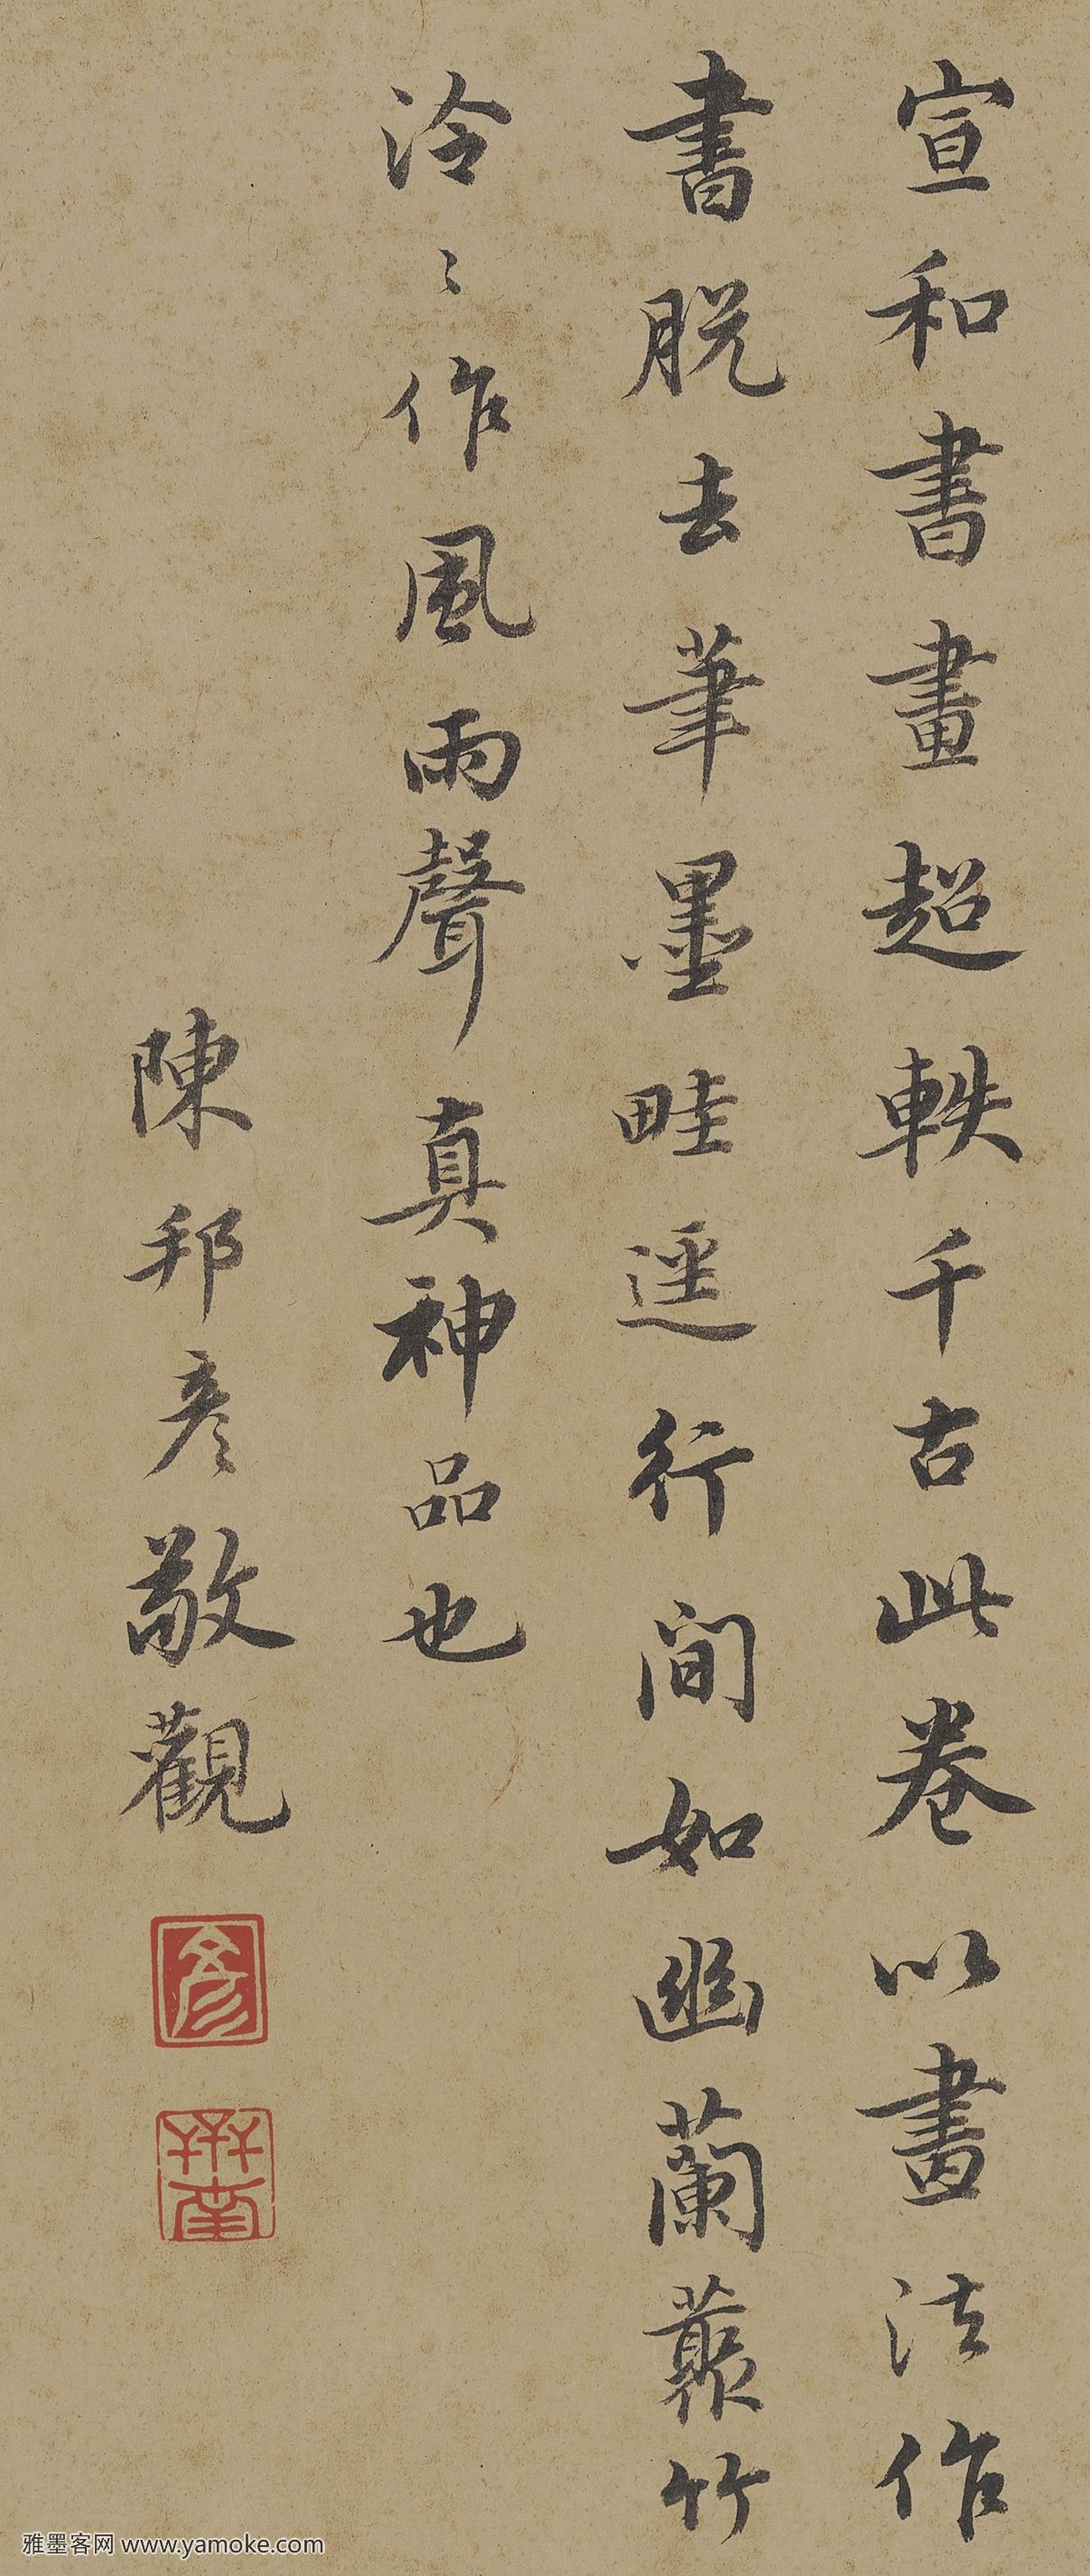 宣和書畫超軼千古此卷以畫法作
書脫去筆墨畦逕行間如幽蘭叢竹
泠〻作風雨聲真神品也
陳邦彥敬觀
雅墨客网 www.yamoke.com